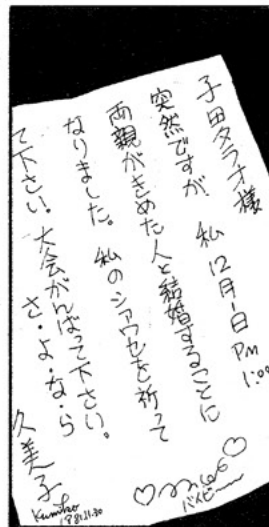 子田タラオ様
突然ですが 私 12月1日 PM 1:00
両親がきめた人と結婚することに
なりました。 私のシアワセを祈って
て下さい。大会がんばって下さい。
さ・よ・な・ら
久美子
バイビー
Kumiko
1981.11.30